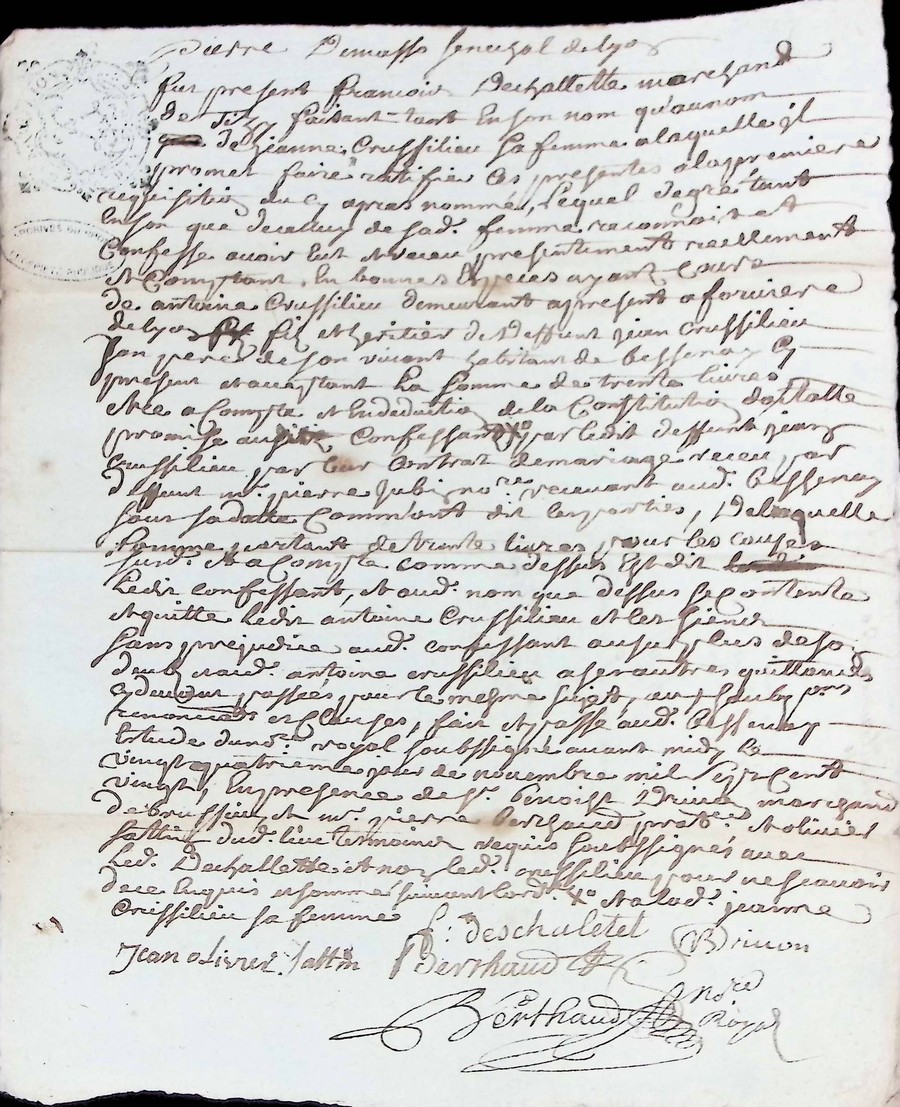 pierre Demasso senechal de lyon
fut present francois Dechallette marchand
de Tizy faisant tant En son nom qu'au nom
de jeanne Crussilieu sa femme a laquelle jl
promet faire ratifie ces presentes a la premiere
requisition du cy apres nommé, lequel de gré tant
En son que de celluy de sad. femme reconnoit et
Confesse avoir Eut et receu presentement reellement
et Comptant En bonnes Especes ayant cours
de antoine Crussilieu demeurant a present a forviere
de lyon fiz et heritier de deffunt jean Crussilieu
son pere de son vivant habitant de bessenay cy
present et acceptant la somme de trente livres
et ce a Compte et En deduction de la Constitution dotalle
promise confessant par ledit deffunt jean
Crussilieu par leur Contrat de mariage receu par
deffunt me. pierre jubin nore. recevant aud. bessenay
sous sa datte Comm'ont dit les parties, De laquelle
somme partant de trente livres pour les causes
surd. et a Compte comme dessus Est dit
ledit confessant, et aud. nom que dessus se contente
et quitte ledit antoine Crussilieu et les siens
sans prejudice aud. confessant au surplus de so
deub et aud. antoine crussilieu a ses autres quittances
cy devant passées pour le mesme sujet,
renonciats et clauses, fait et passe aud. bessenay
Estude du nore. royal soubssigné avant midy le
vingt quatrieme jour de novembre mil sept Cent
vingt, En presence de sr. benoist marchand
de brussieu et me. pierre berthaud prat. et olivier
sattin dud. lieu temoins requis soubssignés avec
led. Dechallette et non led. crussilieu pour ne scavoir
de ce Enquis et sommé suivant lord. et a lad. jeanne
Crussilieu sa femme
f. deschaletet
Jean olivier sattin Berthaud
Berthaud nore
Royal